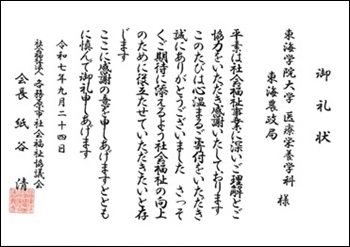 御礼状
東海学院大学 医療栄養学科
東海農政局 様
平素は社会福祉事業に深いご理解とご
協力をいただき感謝いたしております
このたびは心温まるご寄付をいただき
誠にありがとうございました さっそ
くご期待に添えるよう社会福祉の向上
のために役立たせていただきたいと存
じます
ここに感謝の意を申しあげますととも
に慎んで御礼申しあげます
令和七年九月二十四日
社会福祉法人 各務原市社会福祉協議会
会長 紙谷 清